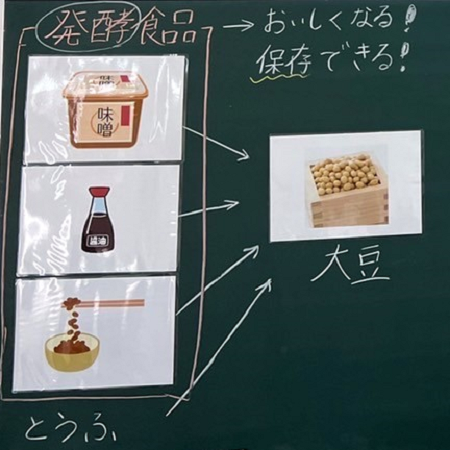 発酵食品 → おいしくなる!
保存できる!
味噌
味噌
醤油
大豆
とうふ